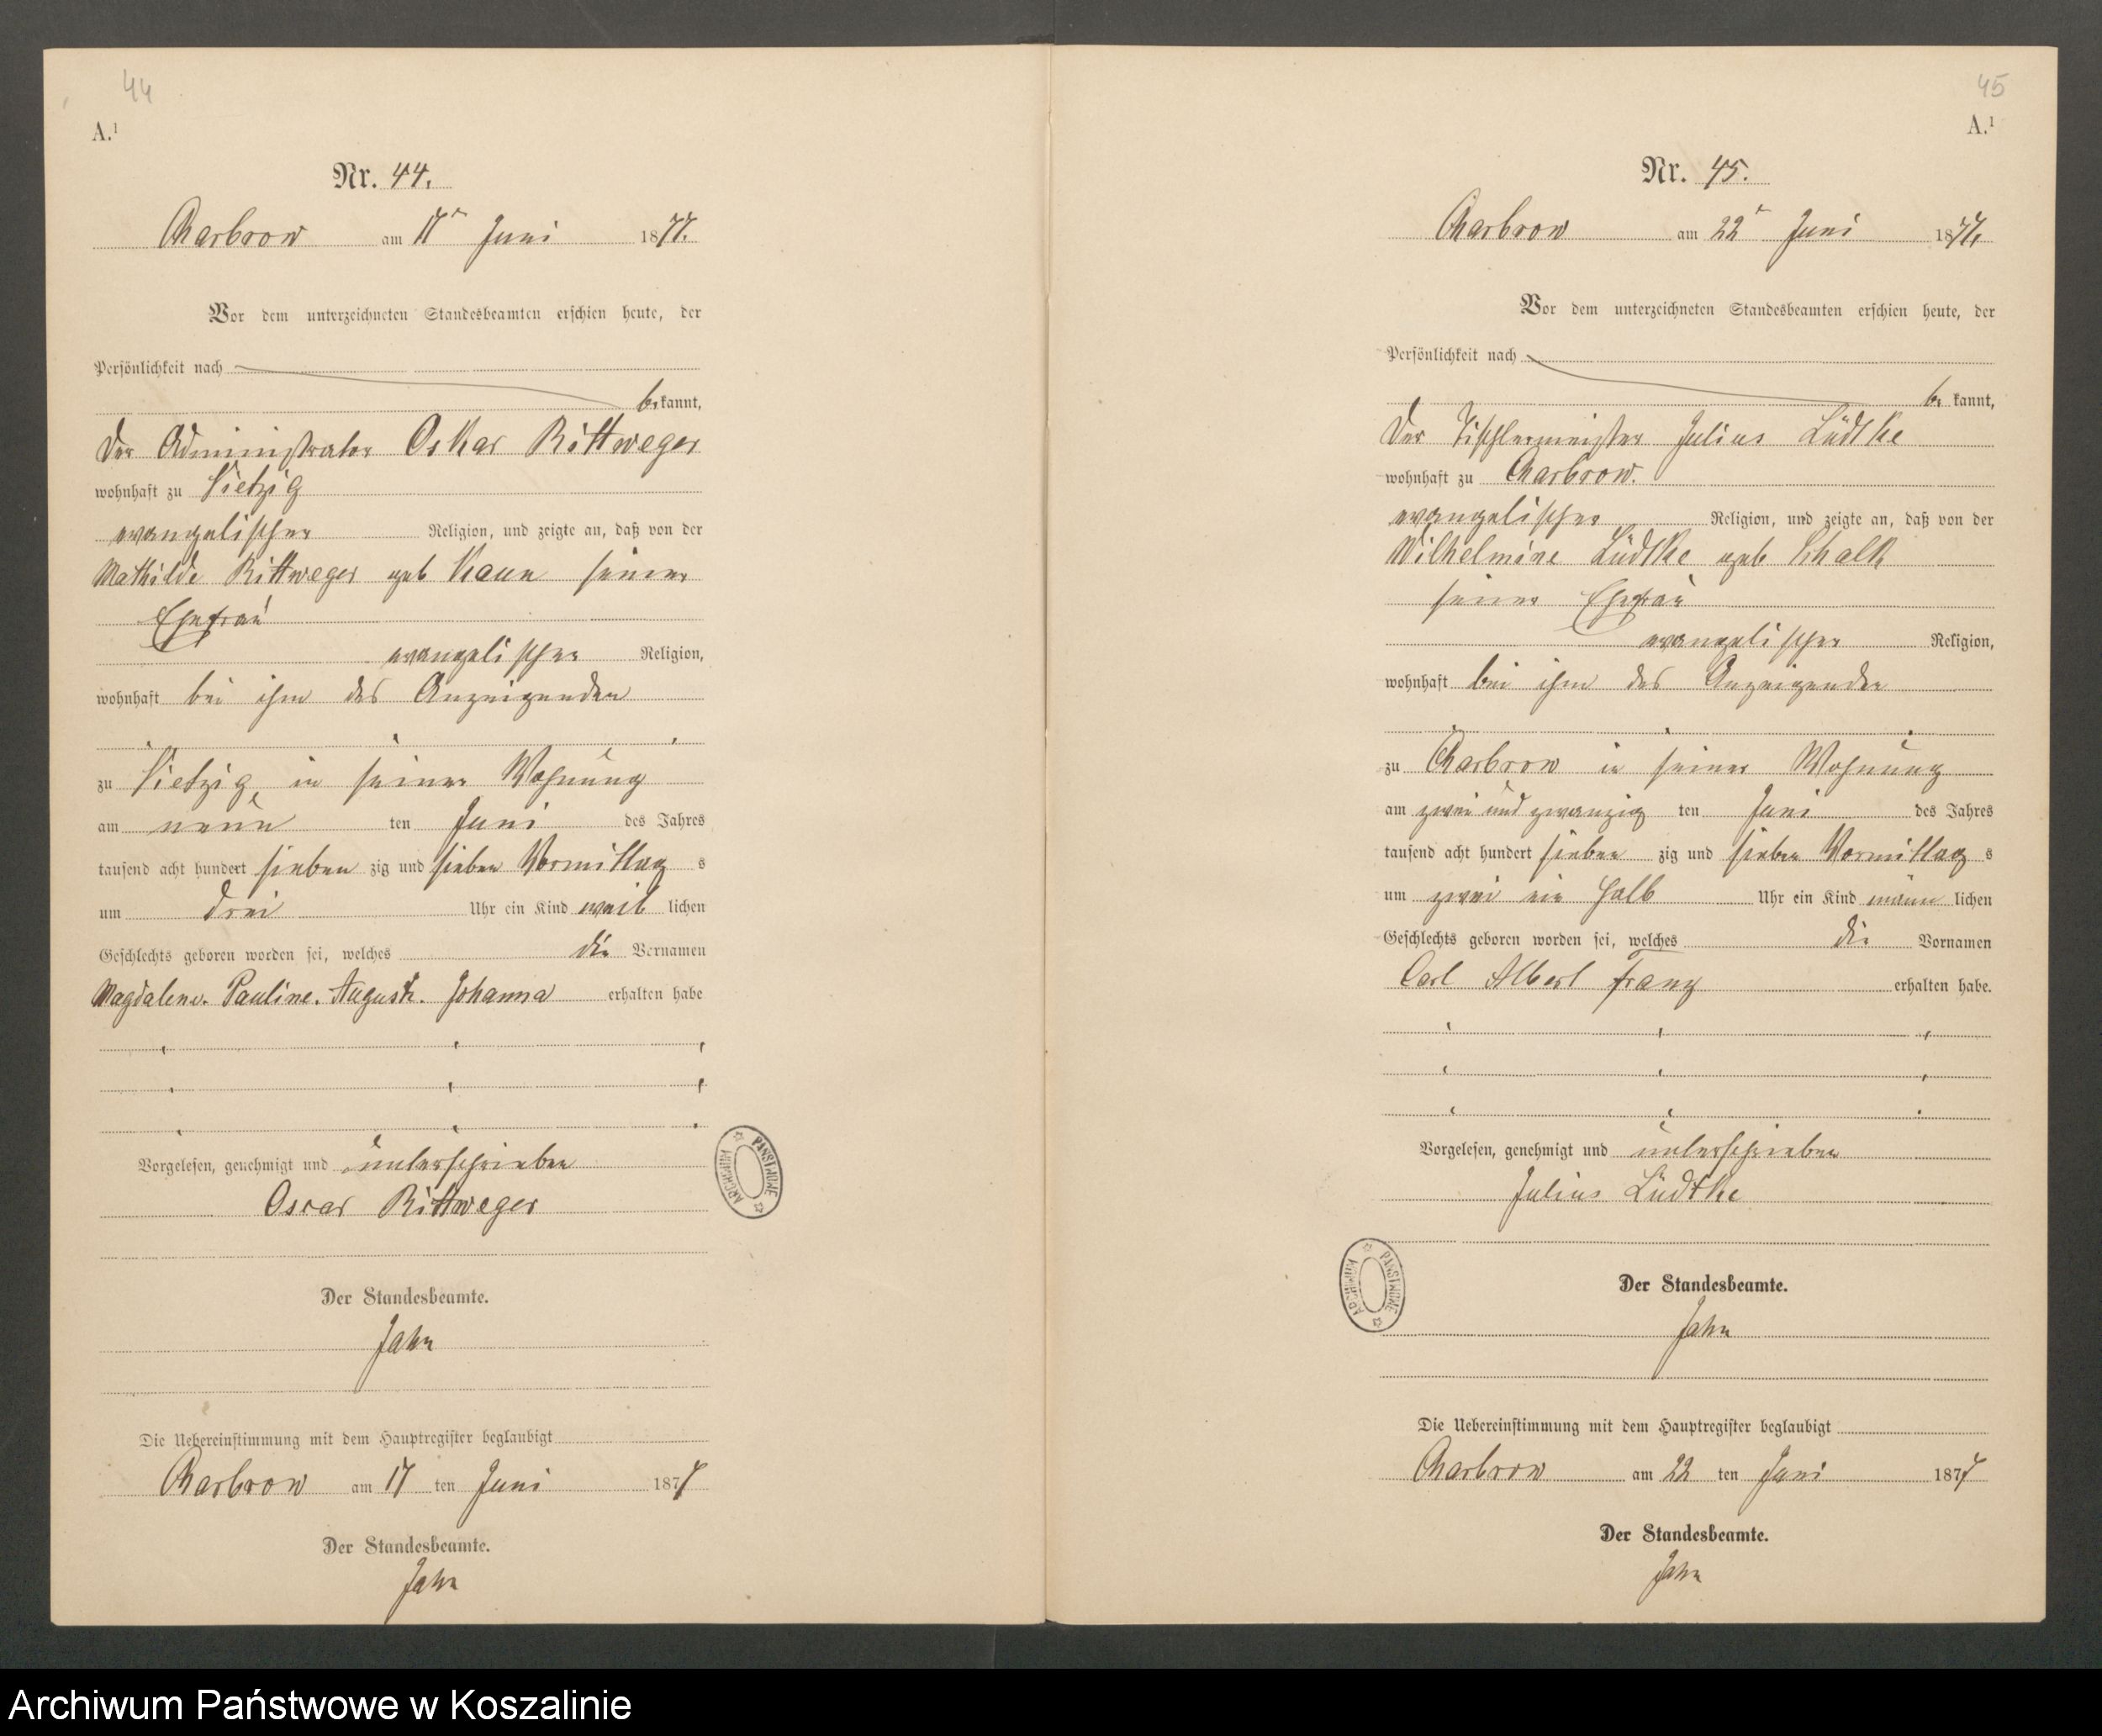 44
A.¹
Nr. 44.
Charbrow am 17ᵗ Juni 1877.
Vor dem unterzeichneten Standesbeamten erschien heute, der
Persönlichkeit nach
bekannt,
Der Administrator Oskar Rittweger
wohnhaft zu Vietzig
evangelischer Religion, und zeigte an, daß von der
Mathilde Rittweger geb Kaun seiner
Ehefrau
evangelischer Religion,
wohnhaft bei ihm des Anzeigenden
zu Vietzig in seiner Wohnung
am neun ten Juni des Jahres
tausend acht hundert sieben zig und sieben Vormittag s
um drei Uhr ein Kind weib lichen
Geschlechts geboren worden sei, welches die Vornamen
Magdalene. Pauline. Auguste. Johanna erhalten habe
Vorgelesen, genehmigt und unterschrieben
Oscar Rittweger
Der Standesbeamte.
Jahn
Die Uebereinstimmung mit dem Hauptregister beglaubigt
Charbrow am 17 ten Juni 1877
Der Standesbeamte.
Jahn
ARCHIWUM PAŃSTWOWE
45
A.¹
Nr. 45.
Charbrow am 22ᵗ Juni 1877.
Vor dem unterzeichneten Standesbeamten erschien heute, der
Persönlichkeit nach
be kannt,
Der Tischlermeister Julius Lüdtke
wohnhaft zu Charbrow.
evangelischer Religion, und zeigte an, daß von der
Wilhelmine Lüdtke geb Schalk
seiner Ehefrau
evangelischer Religion,
wohnhaft bei ihm des Anzeigenden
zu Charbrow in seiner Wohnung
am zwei und zwanzig ten Juni des Jahres
tausend acht hundert sieben zig und sieben Vormittag s
um zwei ein halb Uhr ein Kind männ lichen
Geschlechts geboren worden sei, welches die Vornamen
Carl Albert Franz erhalten habe.
Vorgelesen, genehmigt und unterschrieben
Julius Lüdtke
ARCHIWUM PAŃSTWOWE
Der Standesbeamte.
Jahn
Die Uebereinstimmung mit dem Hauptregister beglaubigt
Charbrow am 22 ten Juni 1877
Der Standesbeamte.
Jahn
Archiwum Państwowe w Koszalinie